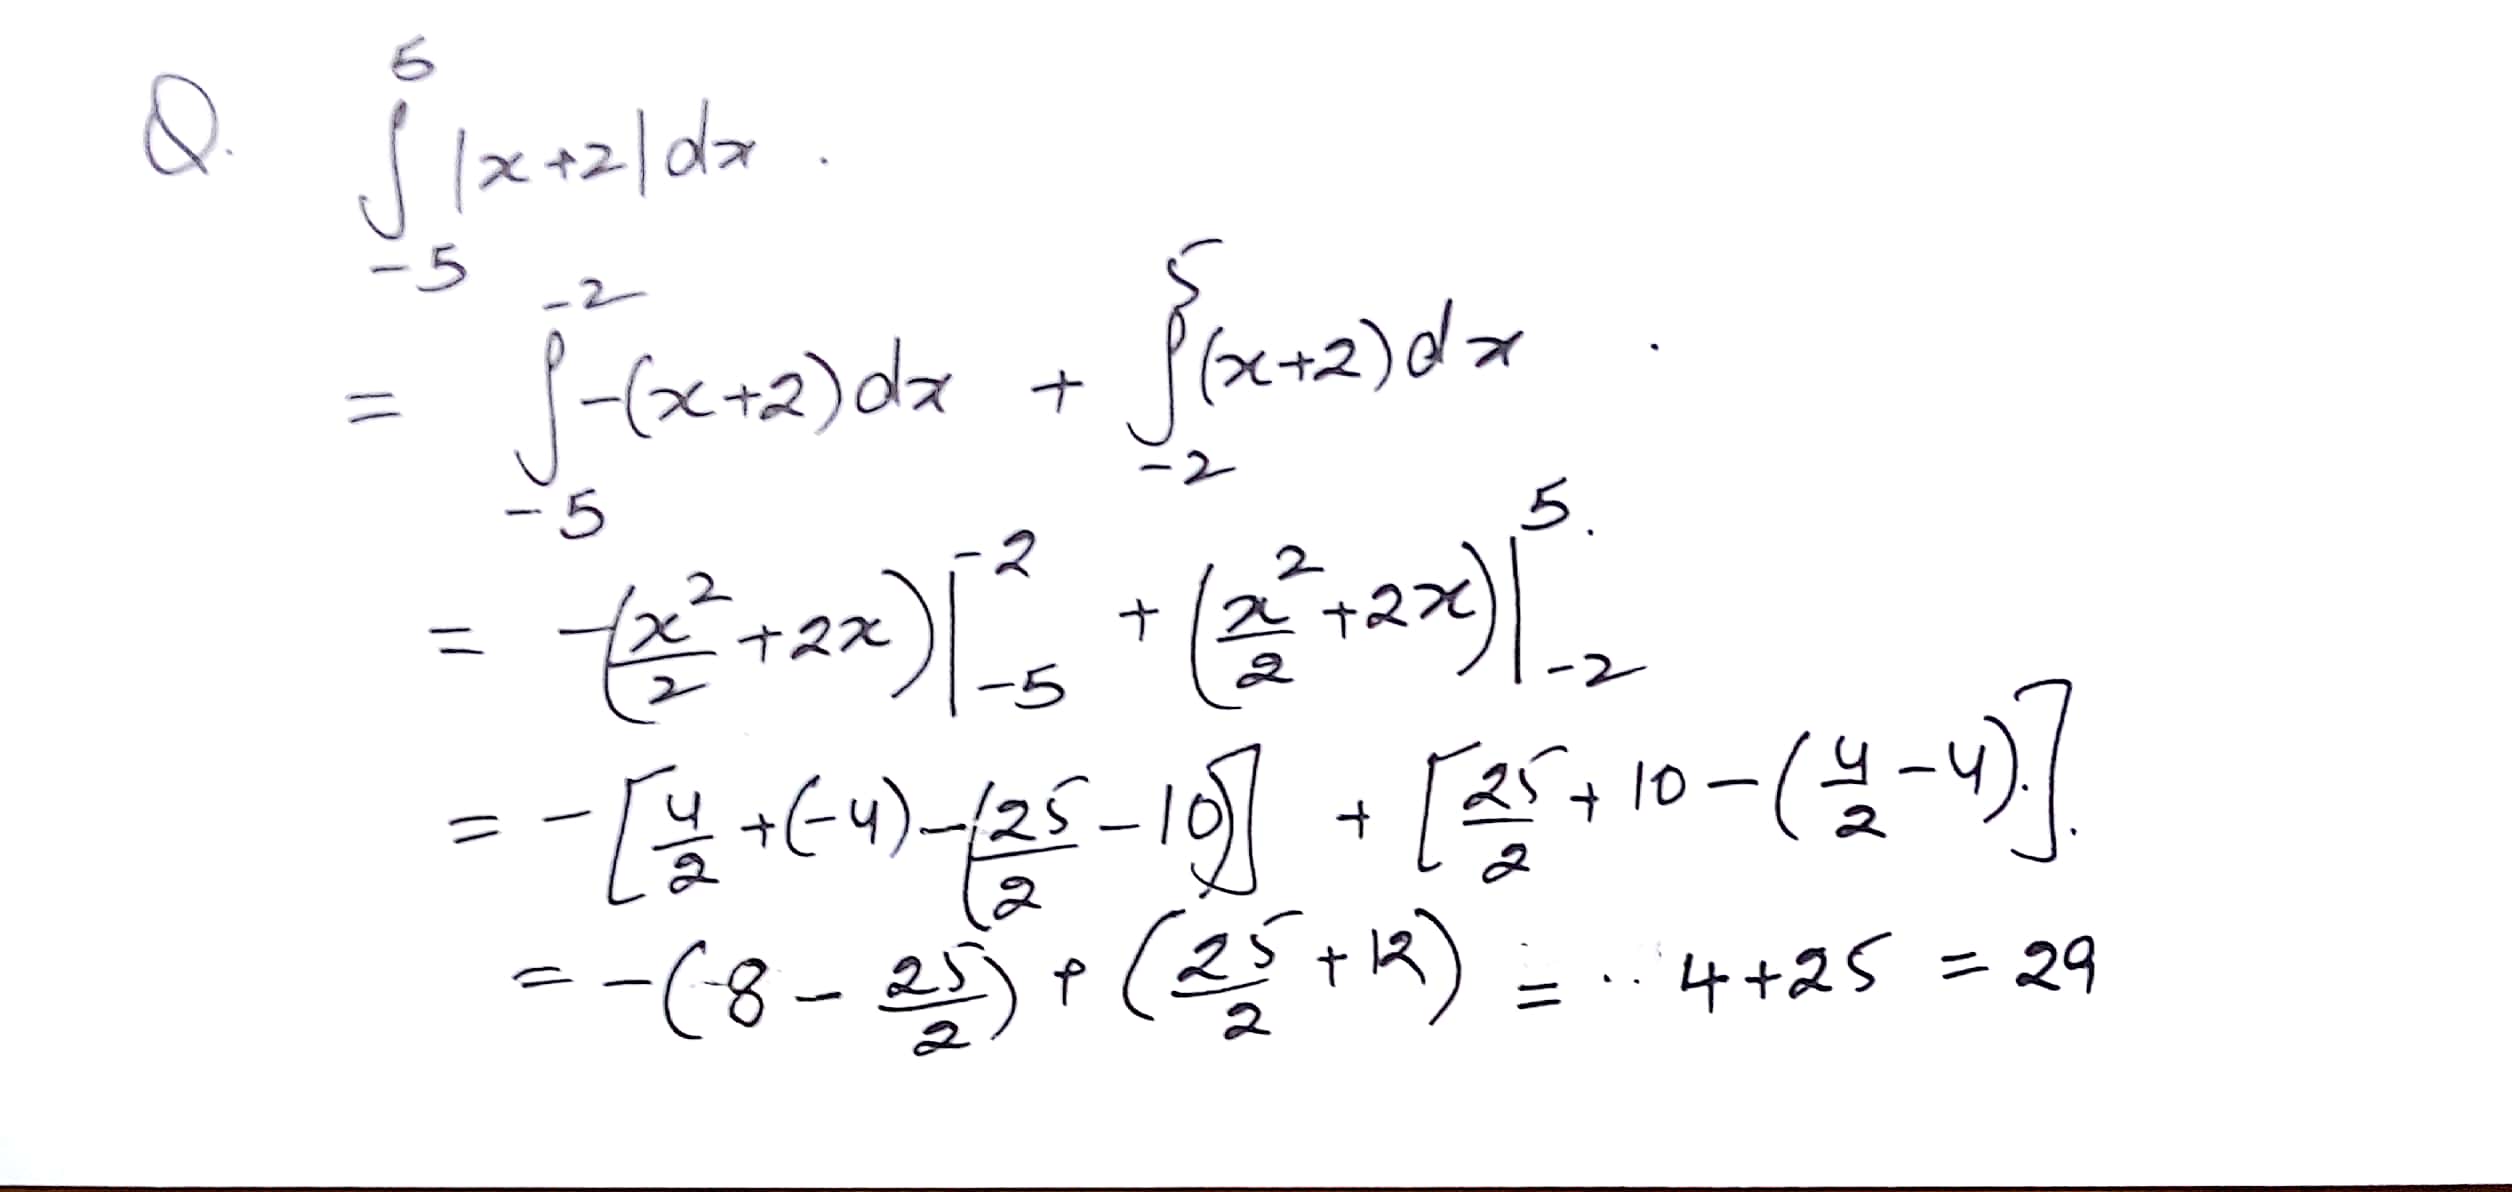 Q. ∫_{-5}^{5} |x+2| dx .
= ∫_{-5}^{-2} -(x+2) dx + ∫_{-2}^{5} (x+2) dx .
= -(x²/2 + 2x)|_{-5}^{-2} + (x²/2 + 2x)|_{-2}^{5} .
= -[4/2 + (-4) - (25/2 - 10)] + [25/2 + 10 - (4/2 - 4).] .
= -(-8 - 25/2) + (25/2 + 12) = .. 4 + 25 = 29